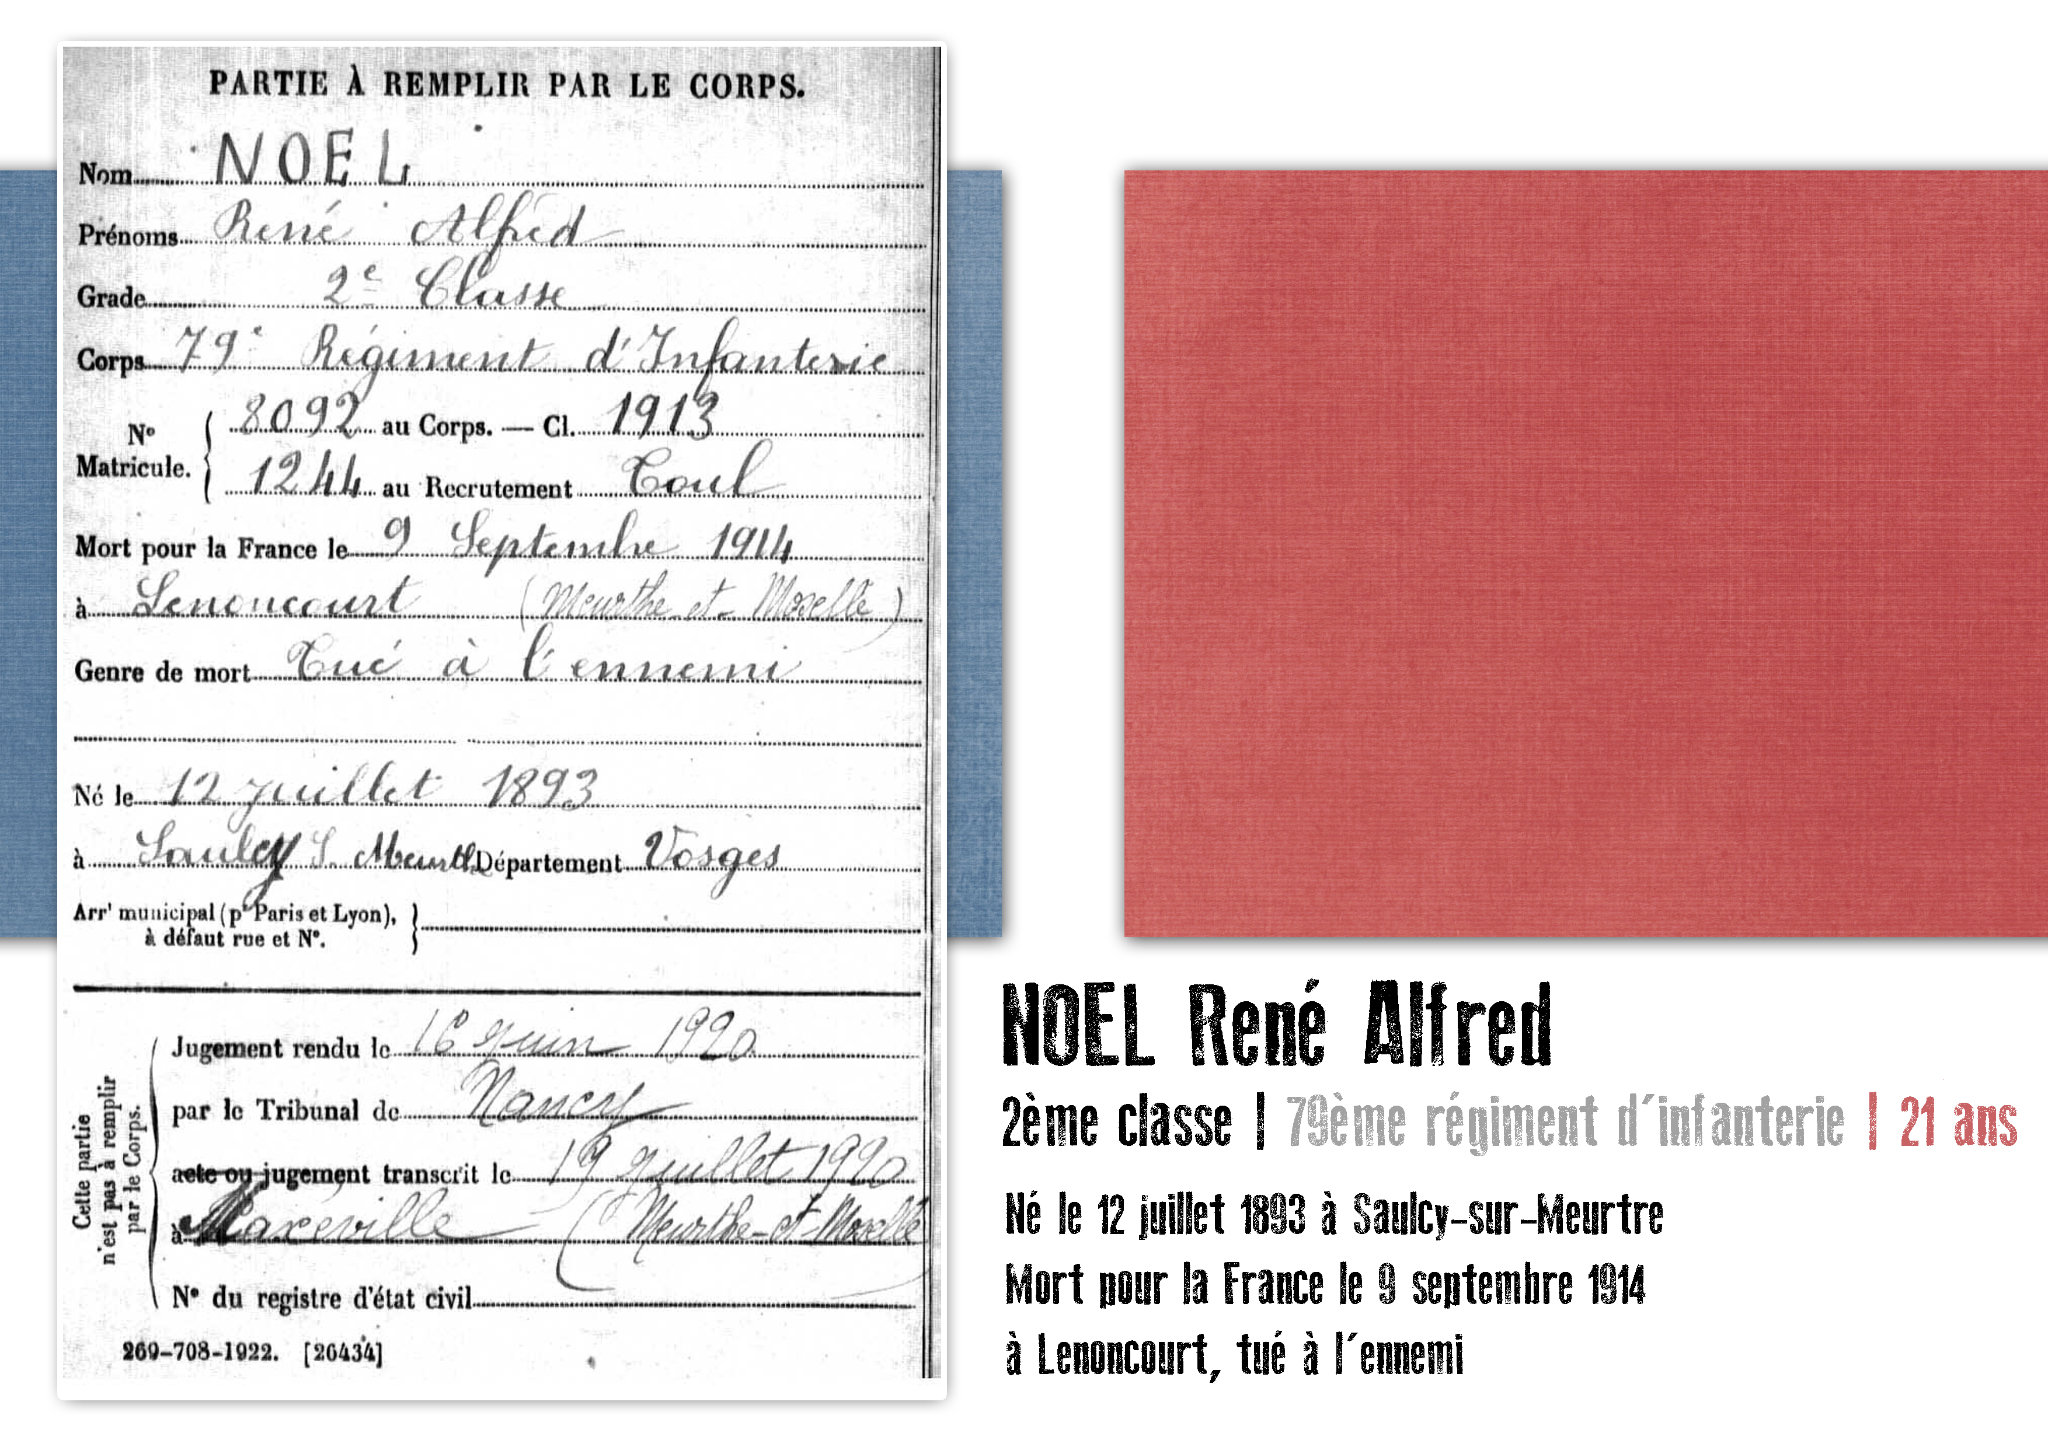 PARTIE À REMPLIR PAR LE CORPS.
Nom NOEL
Prénoms René Alfred
Grade 2e Classe
Corps 79e Régiment d'Infanterie
No Matricule. { 8092 au Corps. — Cl. 1913
1244 au Recrutement Toul
Mort pour la France le 9 Septembre 1914
à Lenoncourt (Meurthe et Moselle)
Genre de mort Tué à l'ennemi
Né le 12 Juillet 1893
à Saulcy S. Meurthe Département Vosges
Arrt municipal (pr Paris et Lyon),
à défaut rue et No. }
Cette partie
n'est pas à remplir
par le Corps.
Jugement rendu le 16 Juin 1920
par le Tribunal de Nancy
acte ou jugement transcrit le 19 Juillet 1920
à Maxéville (Meurthe-et-Moselle
No du registre d'état civil
269-708-1922. [26434]
NOEL René Alfred
2ème classe | 79ème régiment d'infanterie | 21 ans
Né le 12 juillet 1893 à Saulcy-sur-Meurtre
Mort pour la France le 9 septembre 1914
à Lenoncourt, tué à l'ennemi